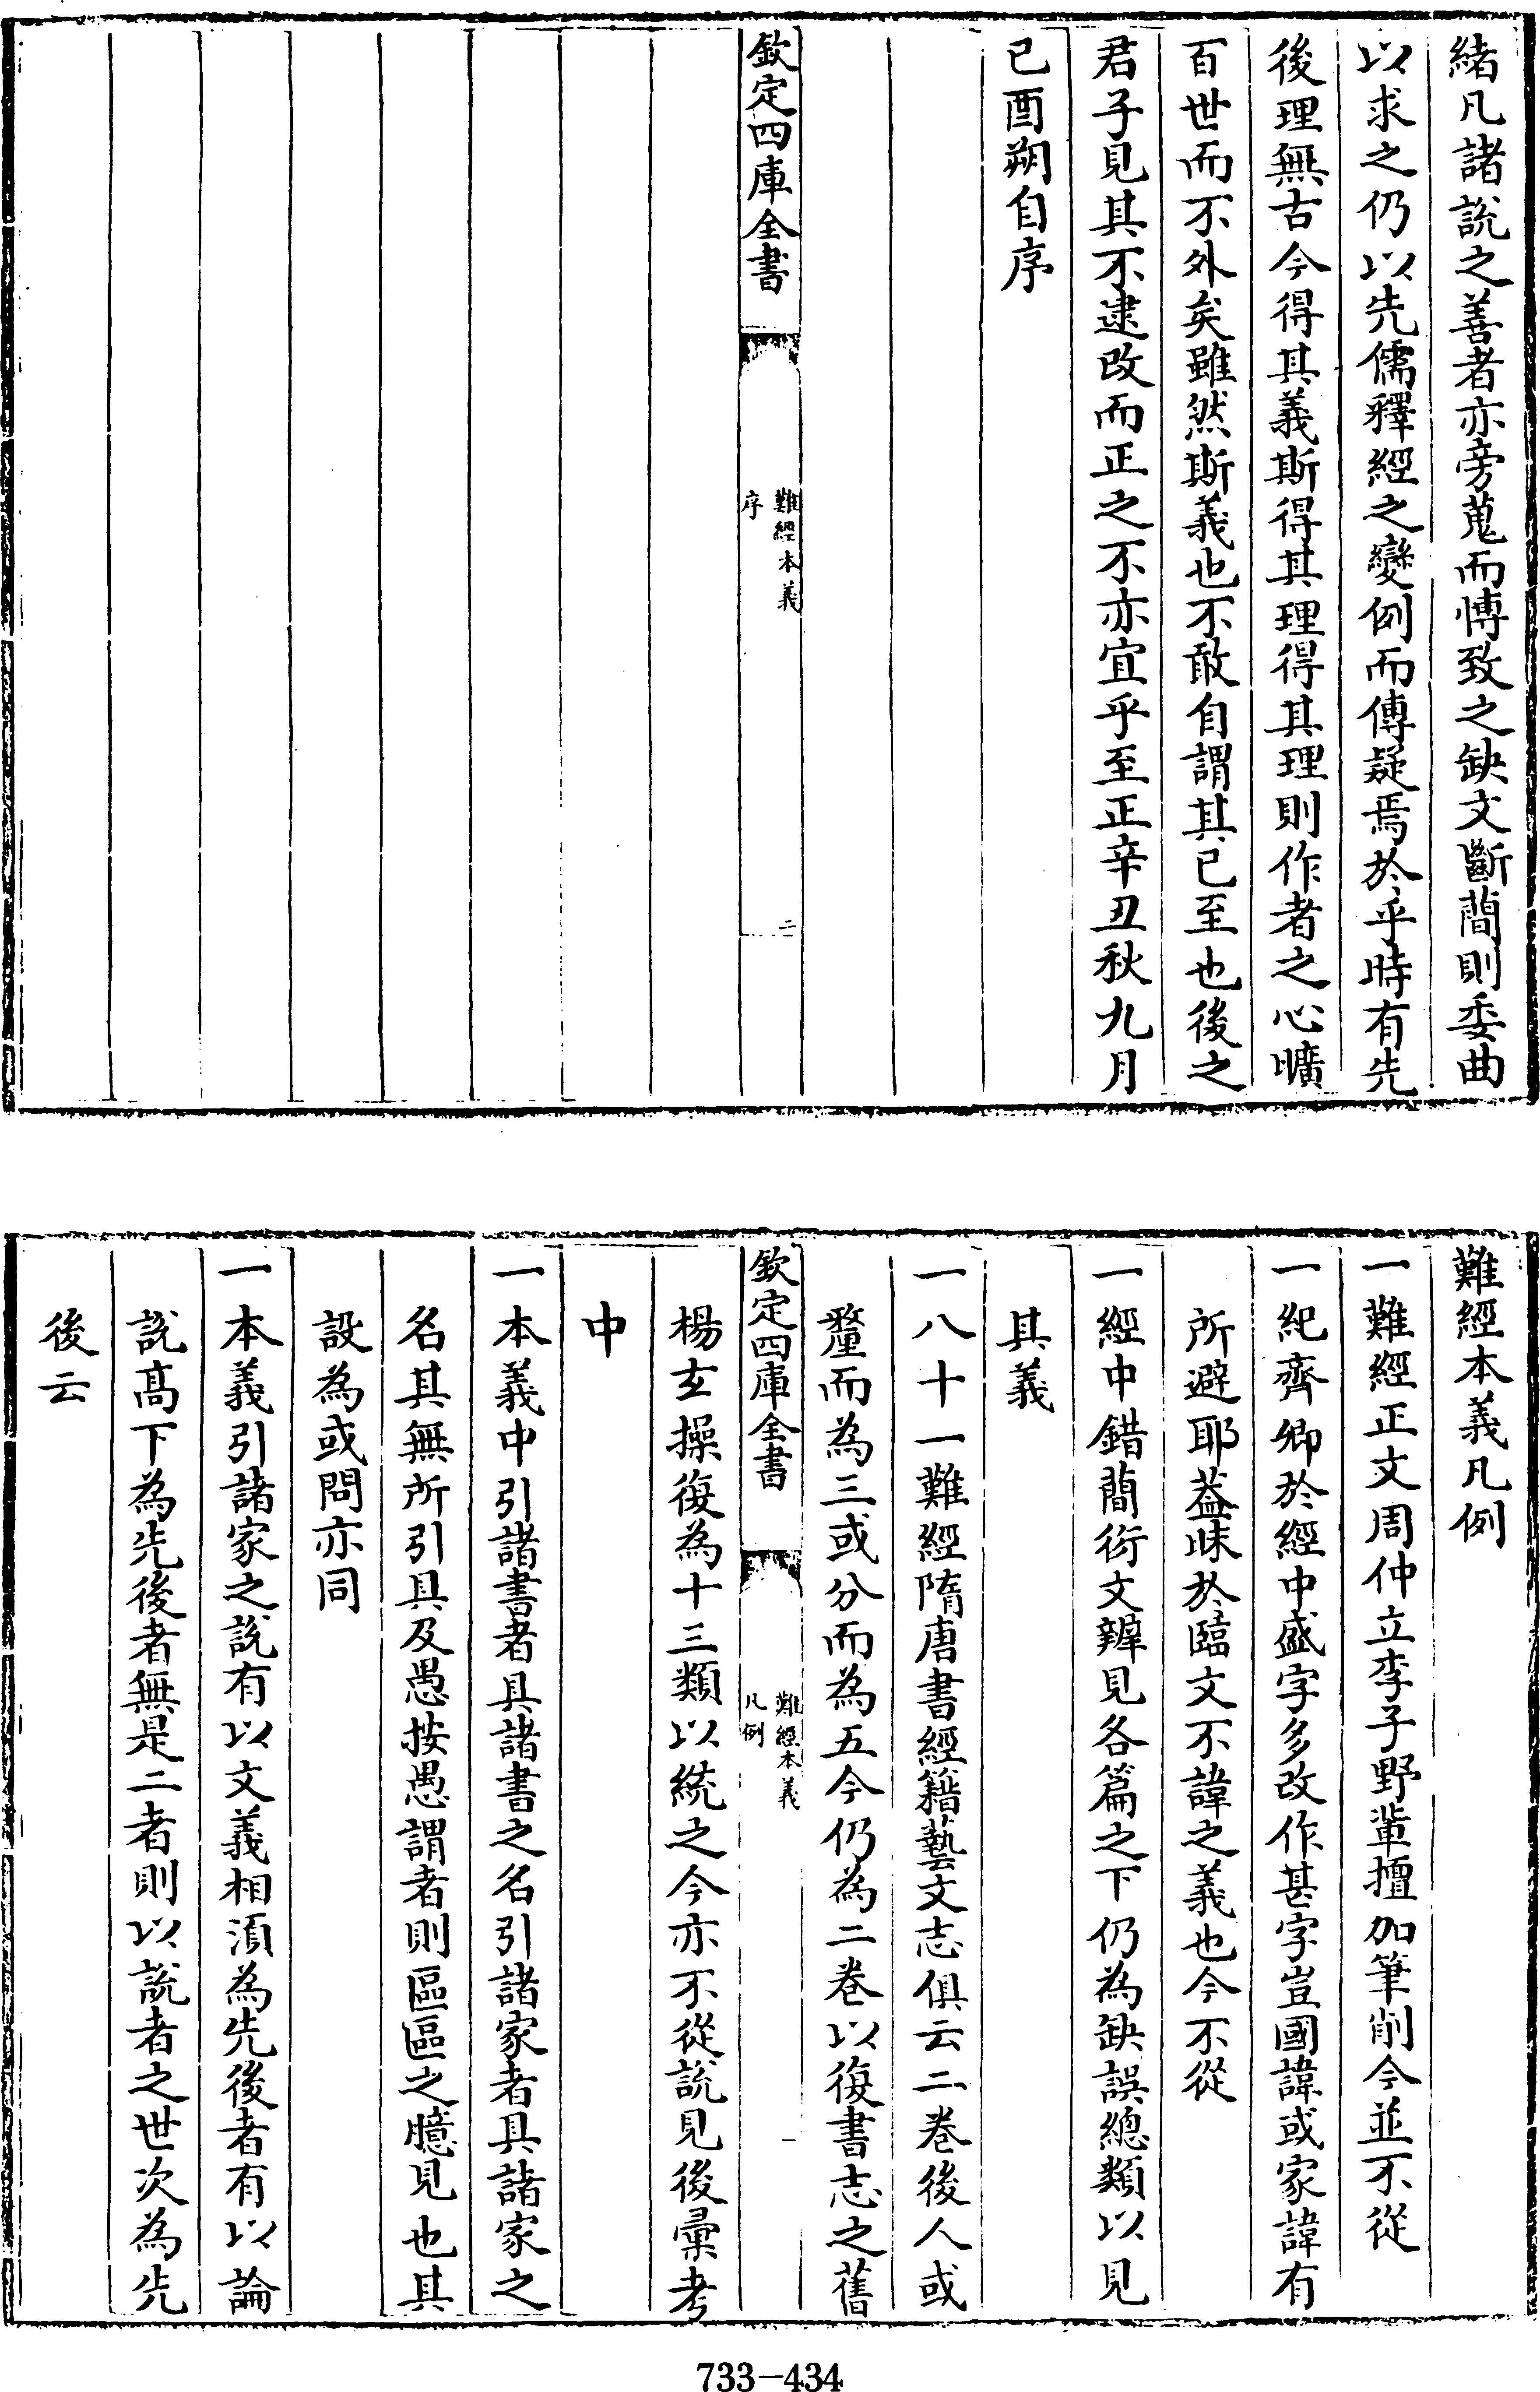 緒凡諸說之善者亦旁蒐而愽致之缺文斷簡則委曲
以求之仍以先儒釋經之變例而傳疑焉於乎時有先
後理無古今得其義斯得其理得其理則作者之心曠
百世而不外矣雖然斯義也不敢自謂其已至也後之
君子見其不逮改而正之不亦宜乎至正辛丑秋九月
已酉朔自序
欽定四庫全書
難經本義
序
二
難經本義凡例
一難經正文周仲立李子野輩擅加筆削今並不從
一紀齊卿於經中盛字多改作甚字豈國諱或家諱有
所避耶葢昧於臨文不諱之義也今不從
一經中錯簡衍文辨見各篇之下仍為缺誤總類以見
其義
一八十一難經隋唐書經籍藝文志俱云二卷後人或
釐而為三或分而為五今仍為二卷以復書志之舊
欽定四庫全書
難經本義
凡例
一
楊玄操復為十三類以統之今亦不從說見後彙考
中
一本義中引諸書者具諸書之名引諸家者具諸家之
名其無所引具及愚按愚謂者則區區之臆見也其
設為或問亦同
一本義引諸家之說有以文義相須為先後者有以論
說高下為先後者無是二者則以說者之世次為先
後云
733-434